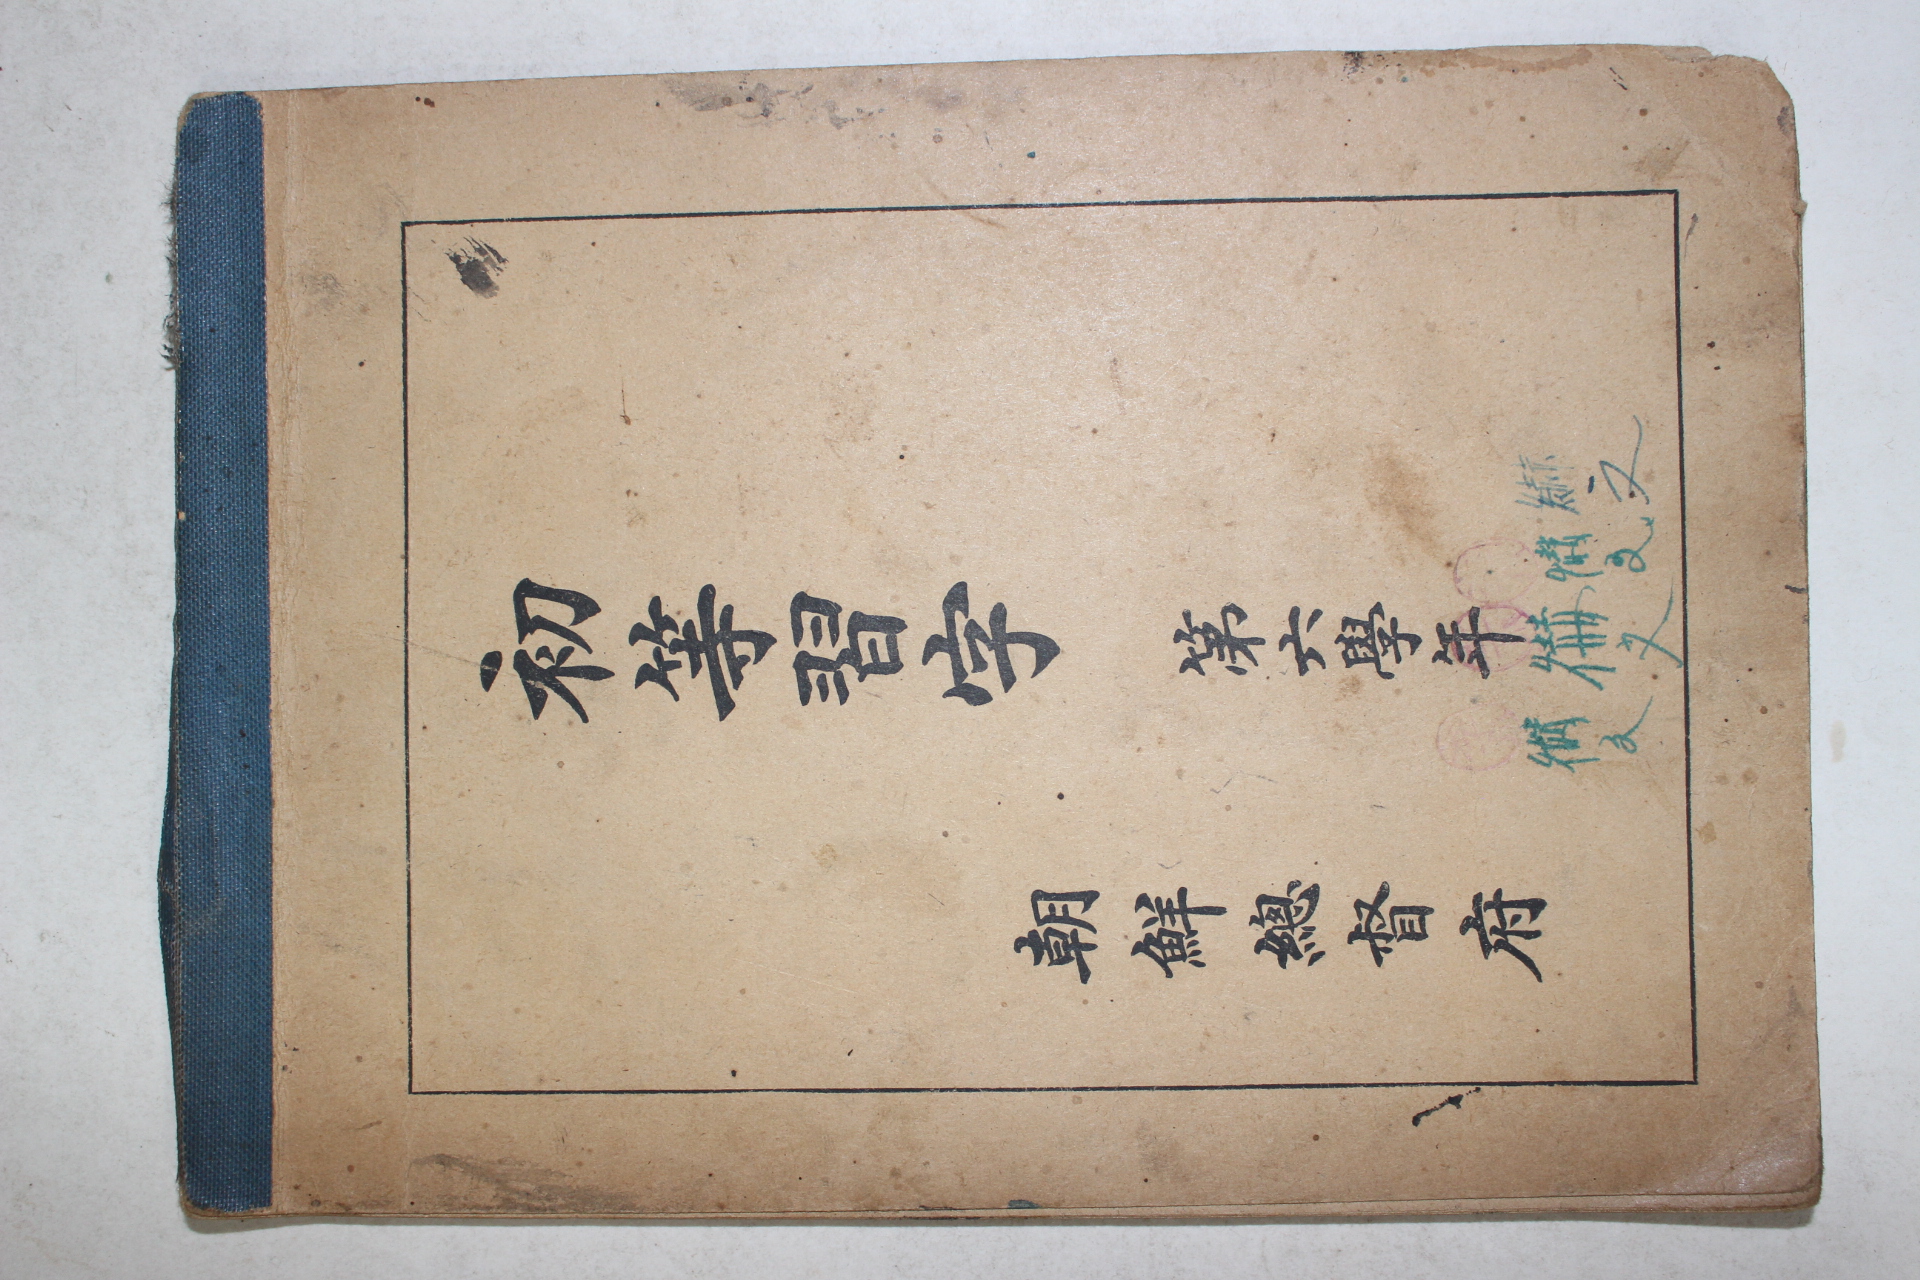 初等習字 第六學年
朝鮮總督府